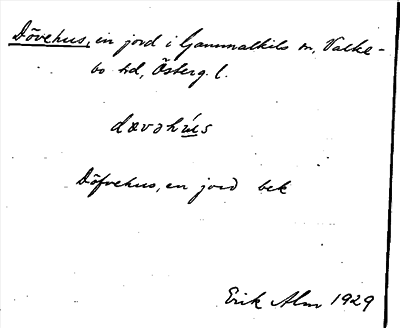 Dövehus, en jord i Gammalkils sn, Valke-
bo hd, Österg. l.
dœvəhús
Döfvehus, en jord bek
Erik Alm 1929